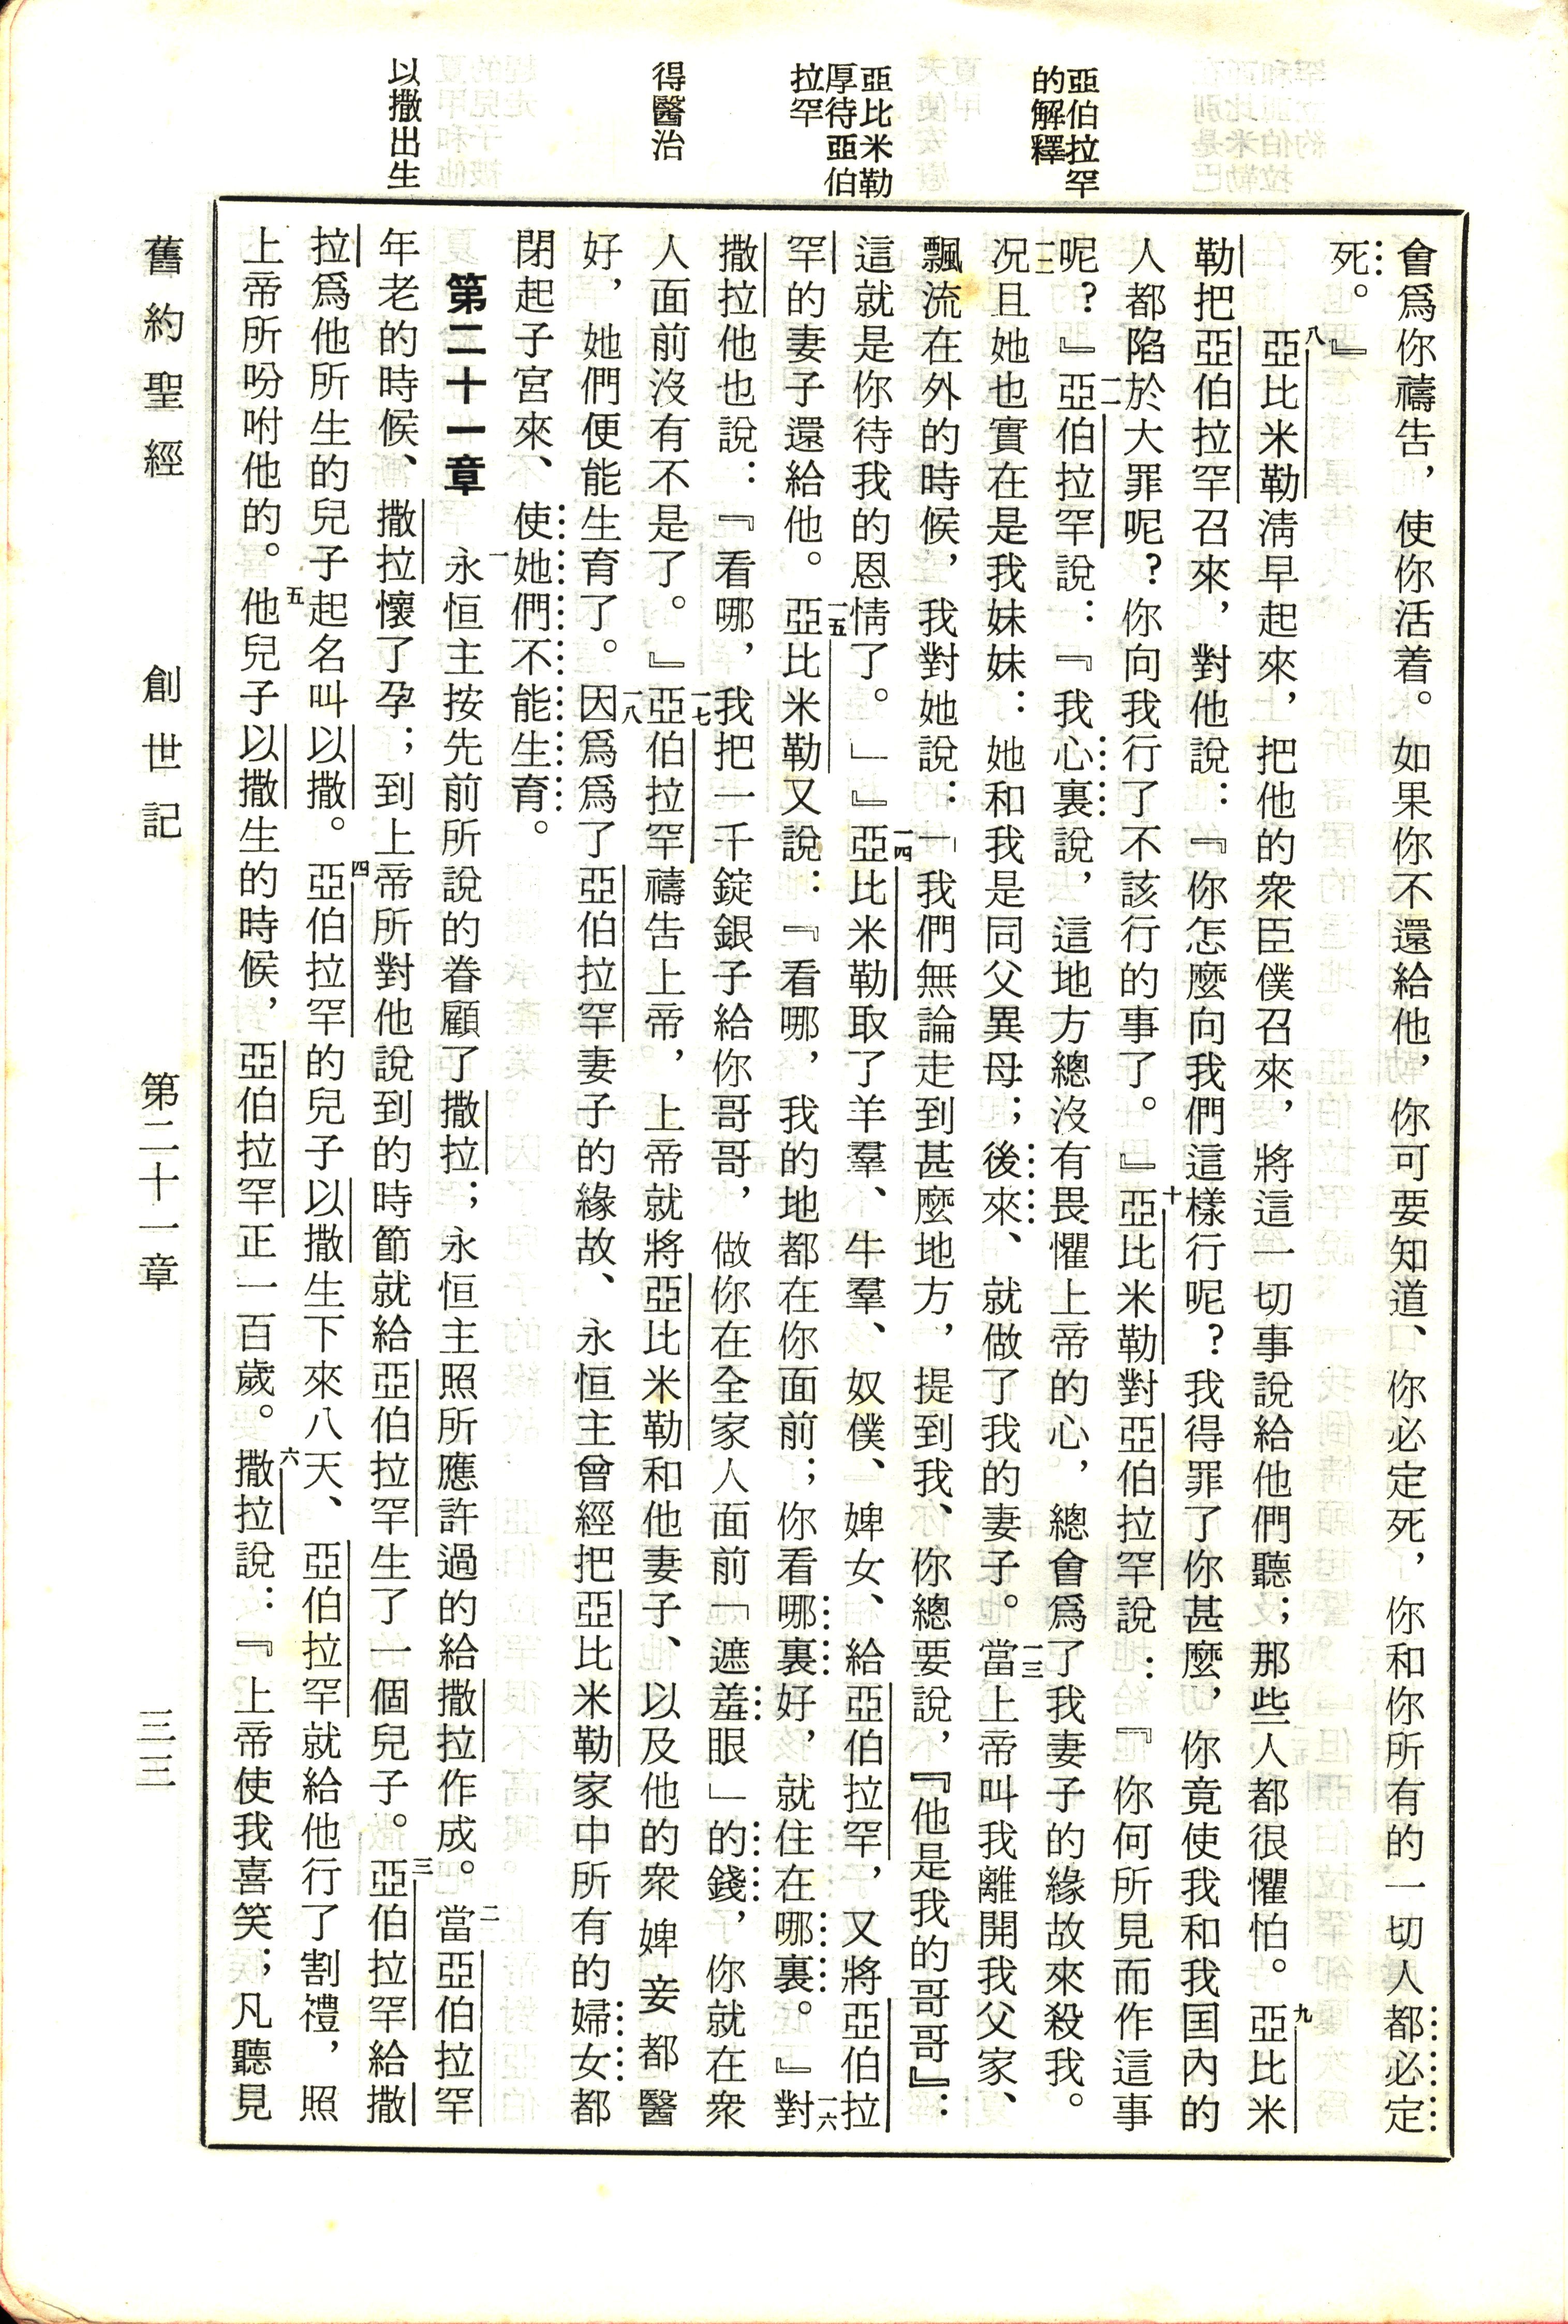 亞伯拉罕
的解釋
亞比米勒
厚待亞伯
拉罕
得醫治
以撒出生
會爲你禱告，使你活着。如果你不還給他，你可要知道、你必定死，你和你所有的一切人都必定
死。』
八亞比米勒淸早起來，把他的衆臣僕召來，將這一切事說給他們聽；那些人都很懼怕。九亞比米
勒把亞伯拉罕召來，對他說：『你怎麼向我們這樣行呢？我得罪了你甚麼，你竟使我和我国內的
人都陷於大罪呢？你向我行了不該行的事了。』十亞比米勒對亞伯拉罕說：『你何所見而作這事
呢？』一一亞伯拉罕說：『我心裏說，這地方總沒有畏懼上帝的心，總會爲了我妻子的緣故來殺我。
一二况且她也實在是我妹妹：她和我是同父異母；後來、就做了我的妻子。一三當上帝叫我離開我父家、
飄流在外的時候，我對她說：「我們無論走到甚麼地方，提到我、你總要說，『他是我的哥哥』：
這就是你待我的恩情了。」』一四亞比米勒取了羊羣、牛羣、奴僕、婢女、給亞伯拉罕，又將亞伯拉
罕的妻子還給他。一五亞比米勒又說：『看哪，我的地都在你面前；你看哪裏好，就住在哪裏。』一六對
撒拉他也說：『看哪，我把一千錠銀子給你哥哥，做你在全家人面前「遮羞眼」的錢，你就在衆
人面前沒有不是了。』一七亞伯拉罕禱告上帝，上帝就將亞比米勒和他妻子、以及他的衆婢妾都醫
好，她們便能生育了。一八因爲爲了亞伯拉罕妻子的緣故、永恒主曾經把亞比米勒家中所有的婦女都
閉起子宮來、使她們不能生育。
第二十一章　一永恒主按先前所說的眷顧了撒拉；永恒主照所應許過的給撒拉作成。二當亞伯拉罕
年老的時候、撒拉懷了孕；到上帝所對他說到的時節就給亞伯拉罕生了一個兒子。三亞伯拉罕給撒
拉爲他所生的兒子起名叫以撒。四亞伯拉罕的兒子以撒生下來八天、亞伯拉罕就給他行了割禮，照
上帝所吩咐他的。五他兒子以撒生的時候，亞伯拉罕正一百歲。六撒拉說：『上帝使我喜笑；凡聽見
舊約聖經　創世記　第二十一章　三三